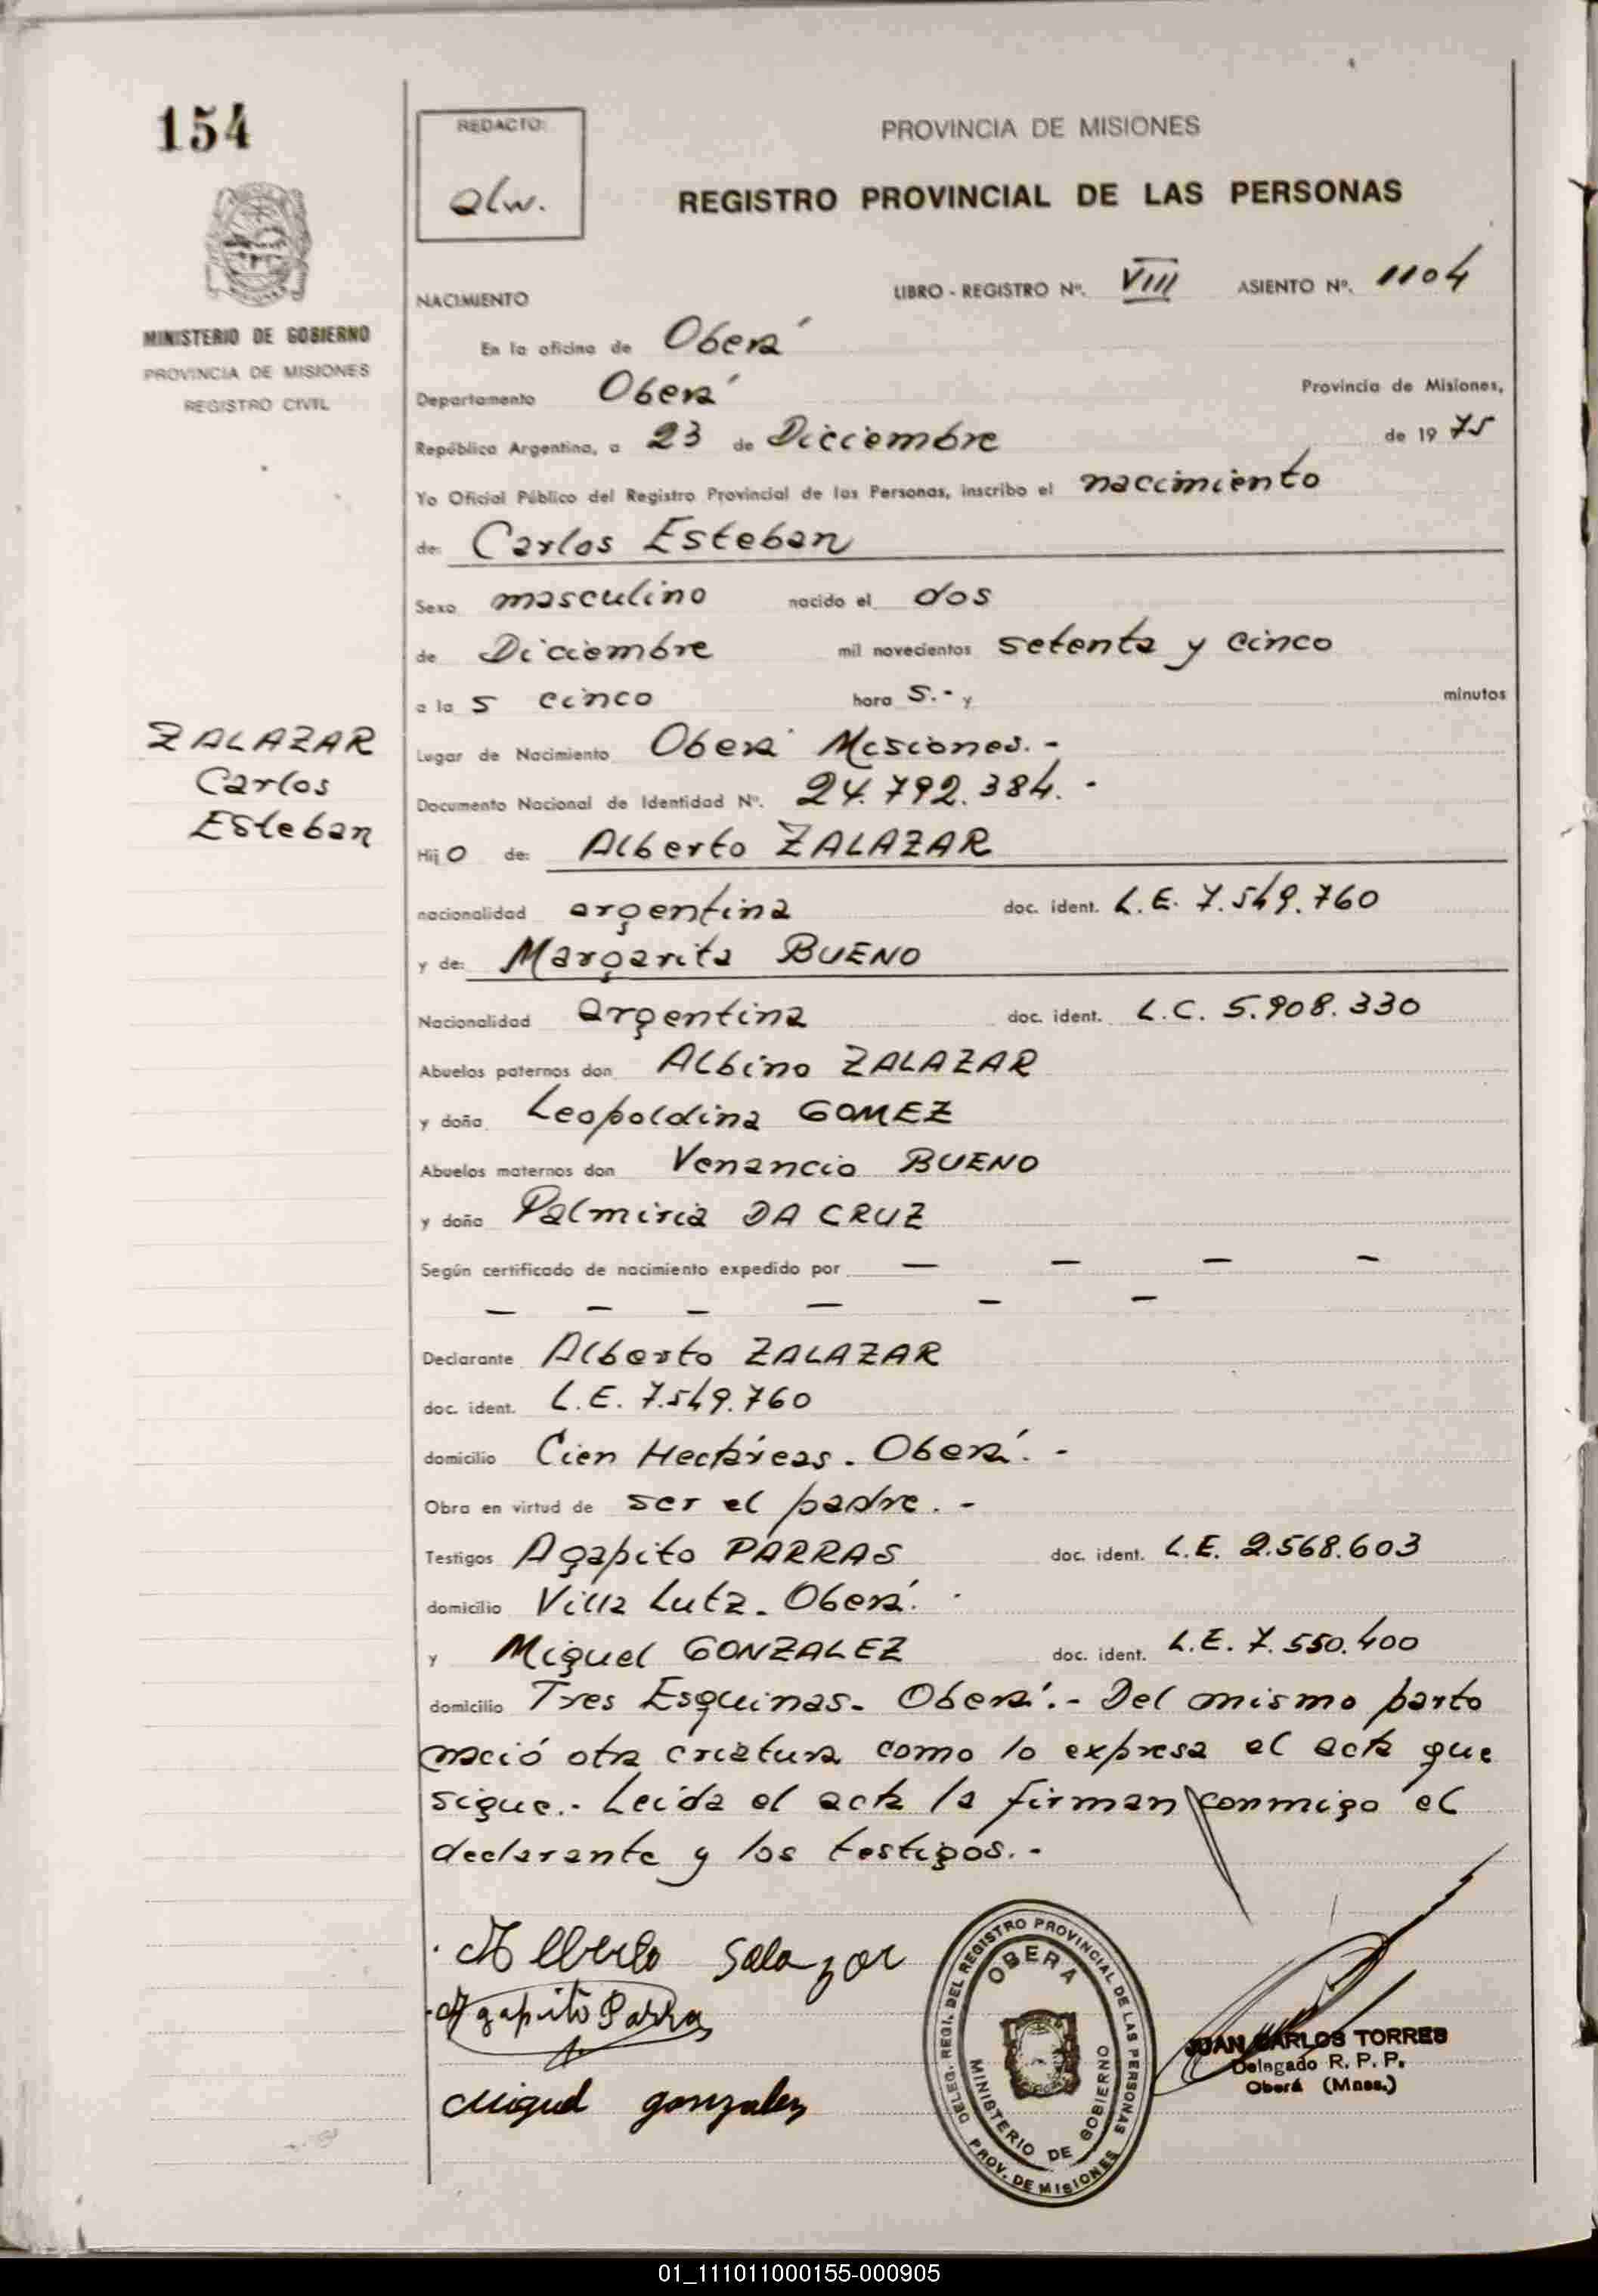 154
REDACTO:
alw.
PROVINCIA DE MISIONES
REGISTRO PROVINCIAL DE LAS PERSONAS
MINISTERIO DE GOBIERNO
PROVINCIA DE MISIONES
REGISTRO CIVIL
NACIMIENTO
LIBRO - REGISTRO Nº. VIII ASIENTO Nº. 1104
En la oficina de Oberá
Departamento Oberá Provincia de Misiones,
República Argentina, a 23 de Diciembre de 1975
Yo Oficial Público del Registro Provincial de las Personas, inscribo el nacimiento
de: Carlos Esteban
Sexo masculino nacido el dos
de Diciembre mil novecientos setenta y cinco
a la 5 cinco hora 5.- y minutos
ZALAZAR
Carlos
Esteban
Lugar de Nacimiento Oberá Misiones.-
Documento Nacional de Identidad Nº. 24.792.384.-
Hijo de: Alberto ZALAZAR
nacionalidad argentina doc. ident. L.E. 7.549.760
y de: Margarita BUENO
Nacionalidad argentina doc. ident. L.C. 5.908.330
Abuelos paternos don Albino ZALAZAR
y doña Leopoldina GOMEZ
Abuelos maternos don Venancio BUENO
y doña Palmiria DA CRUZ
Según certificado de nacimiento expedido por — — — —
— — — — — —
Declarante Alberto ZALAZAR
doc. ident. L.E. 7.549.760
domicilio Cien Hectáreas. Oberá.-
Obra en virtud de ser el padre.-
Testigos Agapito PARRAS doc. ident. L.E. 2.568.603
domicilio Villa Lutz. Oberá.
y Miguel GONZALEZ doc. ident. L.E. 7.550.400
domicilio Tres Esquinas. Oberá.- Del mismo parto
nació otra criatura como lo expresa el acta que
sigue.- Leida el acta la firman conmigo el
declarante y los testigos.-
Alberto Salazar
Agapito Parras
Miguel gonzalez
DELEG. REGI. DEL REGISTRO PROVINCIAL DE LAS PERSONAS
OBERA
MINISTERIO DE GOBIERNO
PROV. DE MISIONES
JUAN CARLOS TORRES
Delegado R. P. P.
Oberá (Mnes.)
01_111011000155-000905